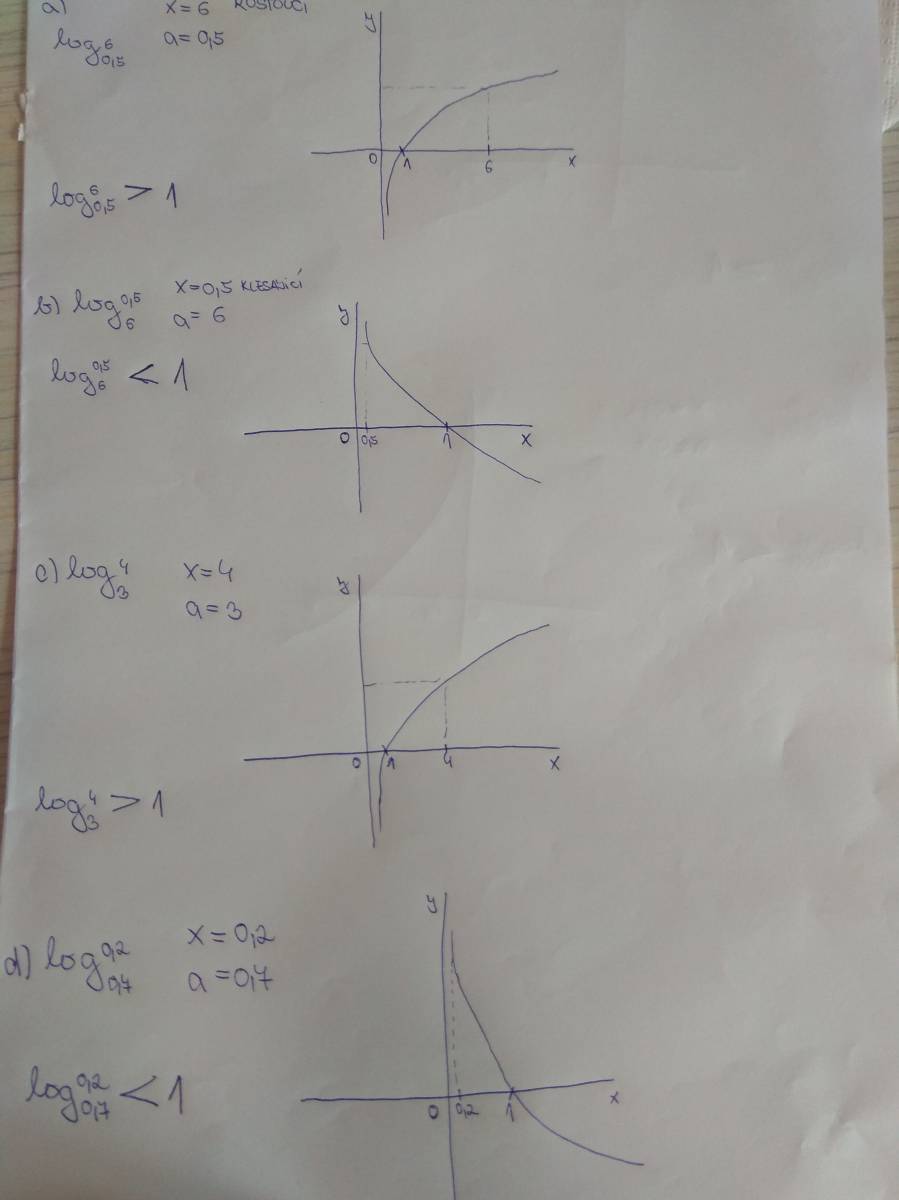 a) x=6 ROSTOUCÍ
log₀,₅⁶ a=0,5
y
0 1 6 x
log₀,₅⁶ > 1
b) log₆⁰,⁵ x=0,5 KLESAJÍCÍ
a=6
y
log₆⁰,⁵ < 1
0 0,5 1 x
c) log₃⁴ x=4
a=3
y
0 1 4 x
log₃⁴ > 1
y
d) log₀,₇⁰,² x=0,2
a=0,7
log₀,₇⁰,² < 1
0 0,2 1 x